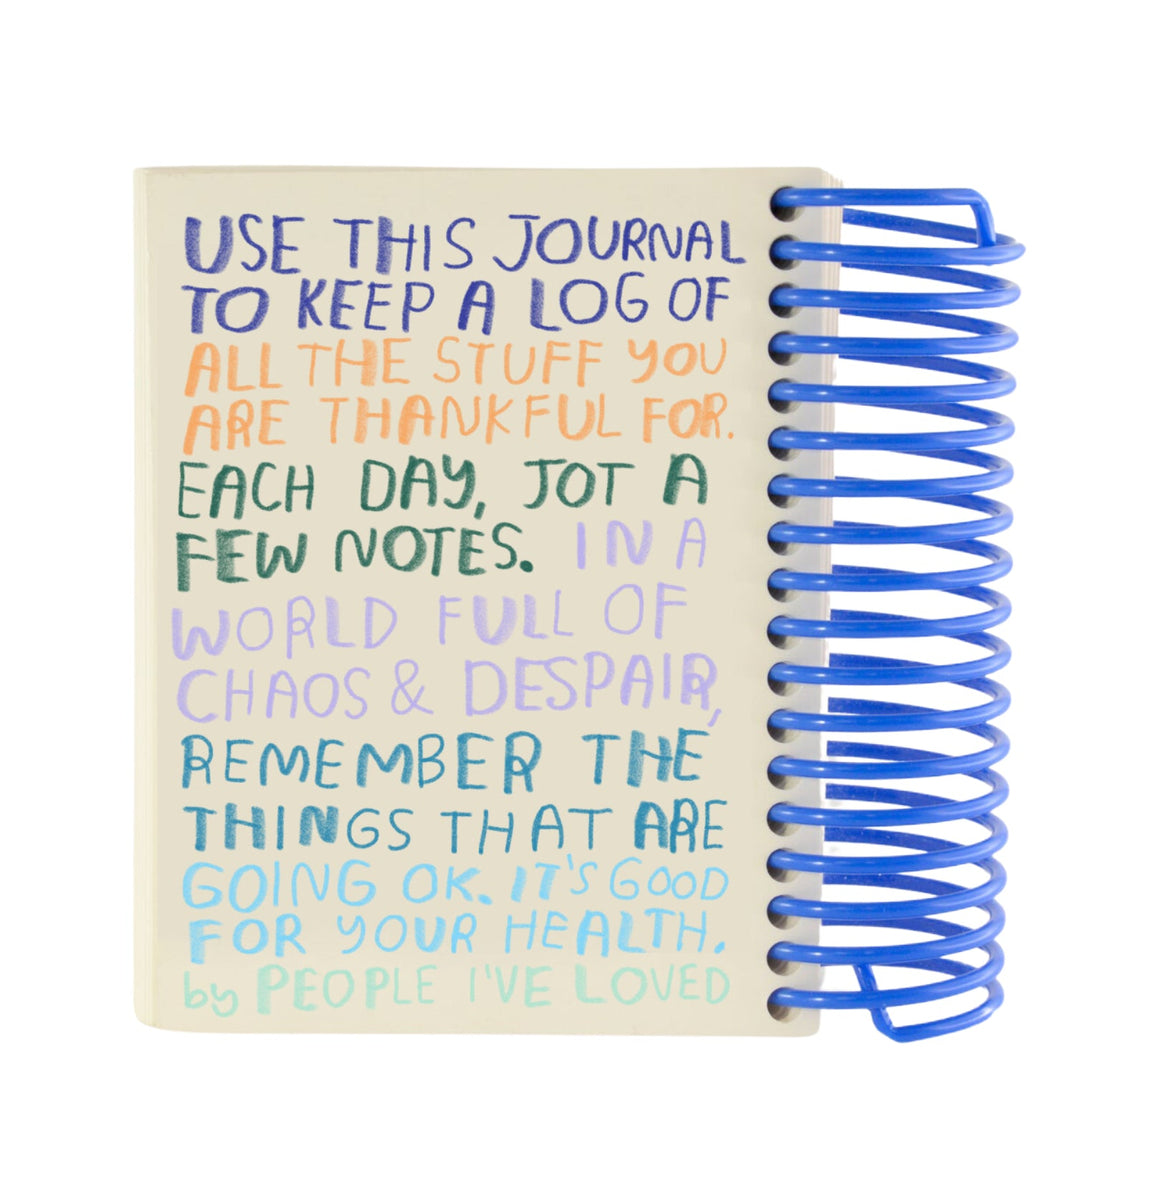 USE THIS JOURNAL
TO KEEP A LOG OF
ALL THE STUFF YOU
ARE THANKFUL FOR.
EACH DAY, JOT A
FEW NOTES. IN A
WORLD FULL OF
CHAOS & DESPAIR,
REMEMBER THE
THINGS THAT ARE
GOING OK. IT'S GOOD
FOR YOUR HEALTH.
by PEOPLE I'VE LOVED